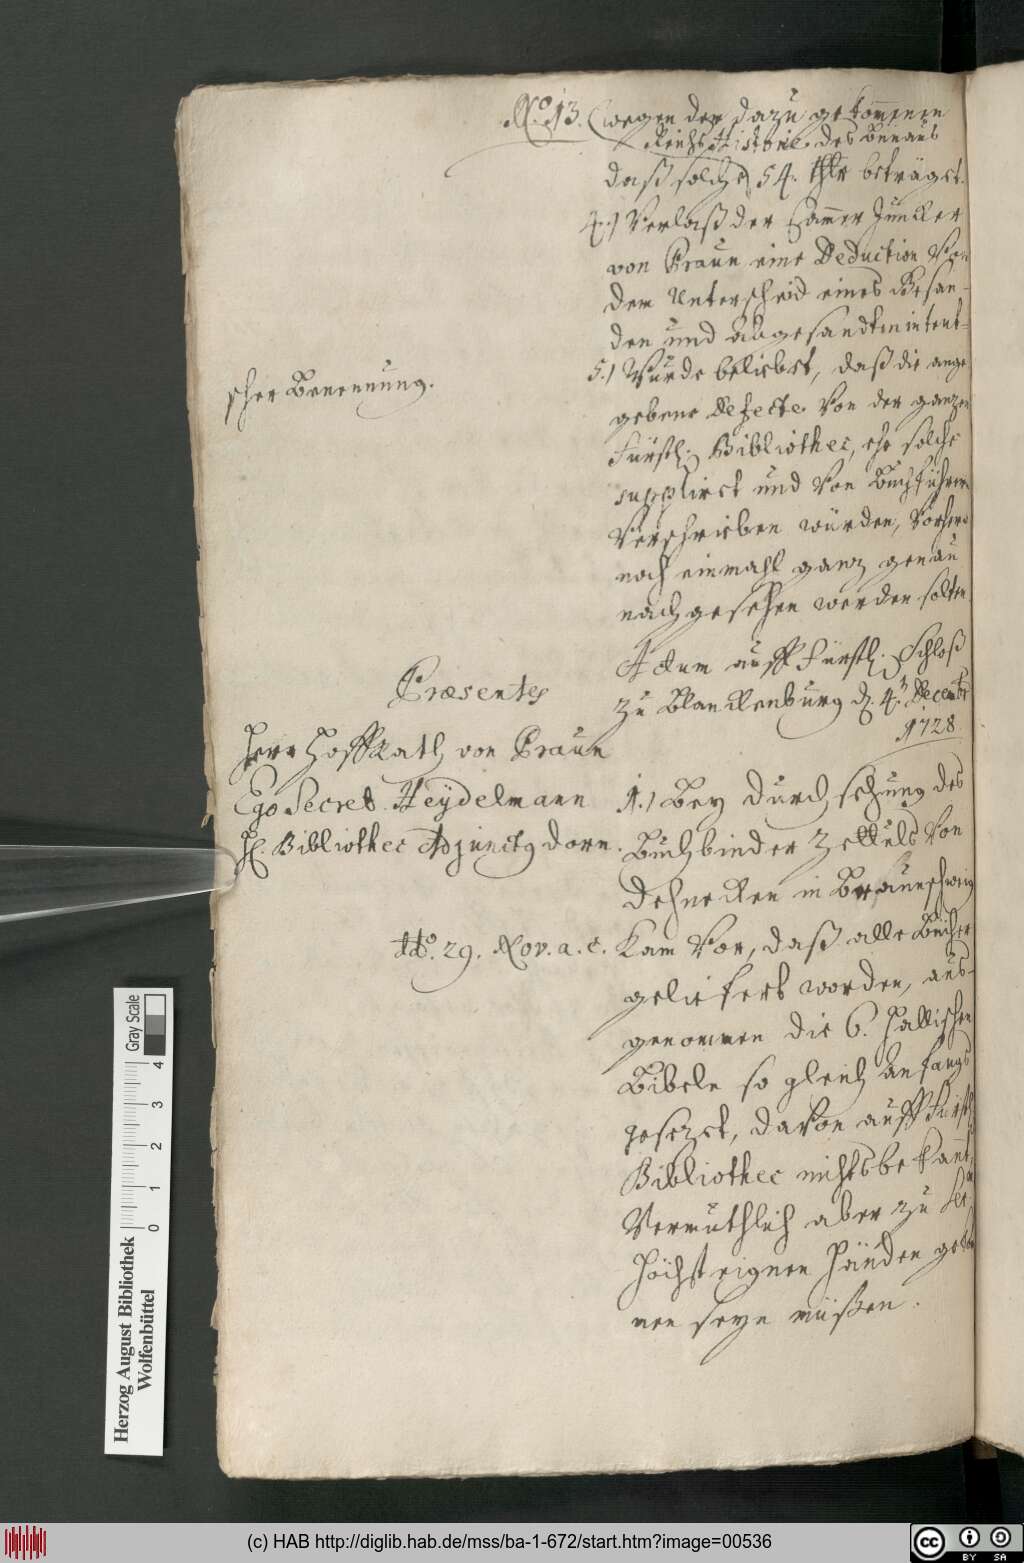 No. 13. (wegen der dazu gekommenen
Reichs Historie des Bunaus
daß solche 54. thlr beträget.
4.) Verlaß der Cammer Juncker
von Praun eine Deduction Von
dem Unterscheid eines Gesan-
den und Abgesandten in teut-
scher Benennung.
5.) Wurde beliebet, daß die ange
gebene Defecte Von der ganzen
Fürstl. Bibliothec, ehe solche
suppliret und Von Buchführern
Verschrieben würden, Vorhero
noch einmahl ganz genau
nachgesehen werden solten.
Actum auff Fürstl. Schloß
zu Blanckenburg d. 4. Decembr
1728
Præsentes
Herr HoffRath von Praun
Ego Secret. Heÿdelmann
H. Bibliothec Adjunctus Dorn.
1.) Bey durchsehung des
Buchbinder Zettuls Von
Dehnecken in Braunschweig
dd. 29. Nov. a. c.
Kam Vor, daß alle Bücher
geliefert worden, aus-
genommen die 6. Hallischen
Bibeln so gleich Anfangs
gesezet, davon auff Fürstl.
Bibliothec nichts bekannt,
Vermuthlich aber zu
Höchst eignen Händen gekom
men seyn müßen.
Herzog August Bibliothek
Wolfenbüttel
0 1 2 3 4
Gray Scale
(c) HAB http://diglib.hab.de/mss/ba-1-672/start.htm?image=00536
cc BY SA